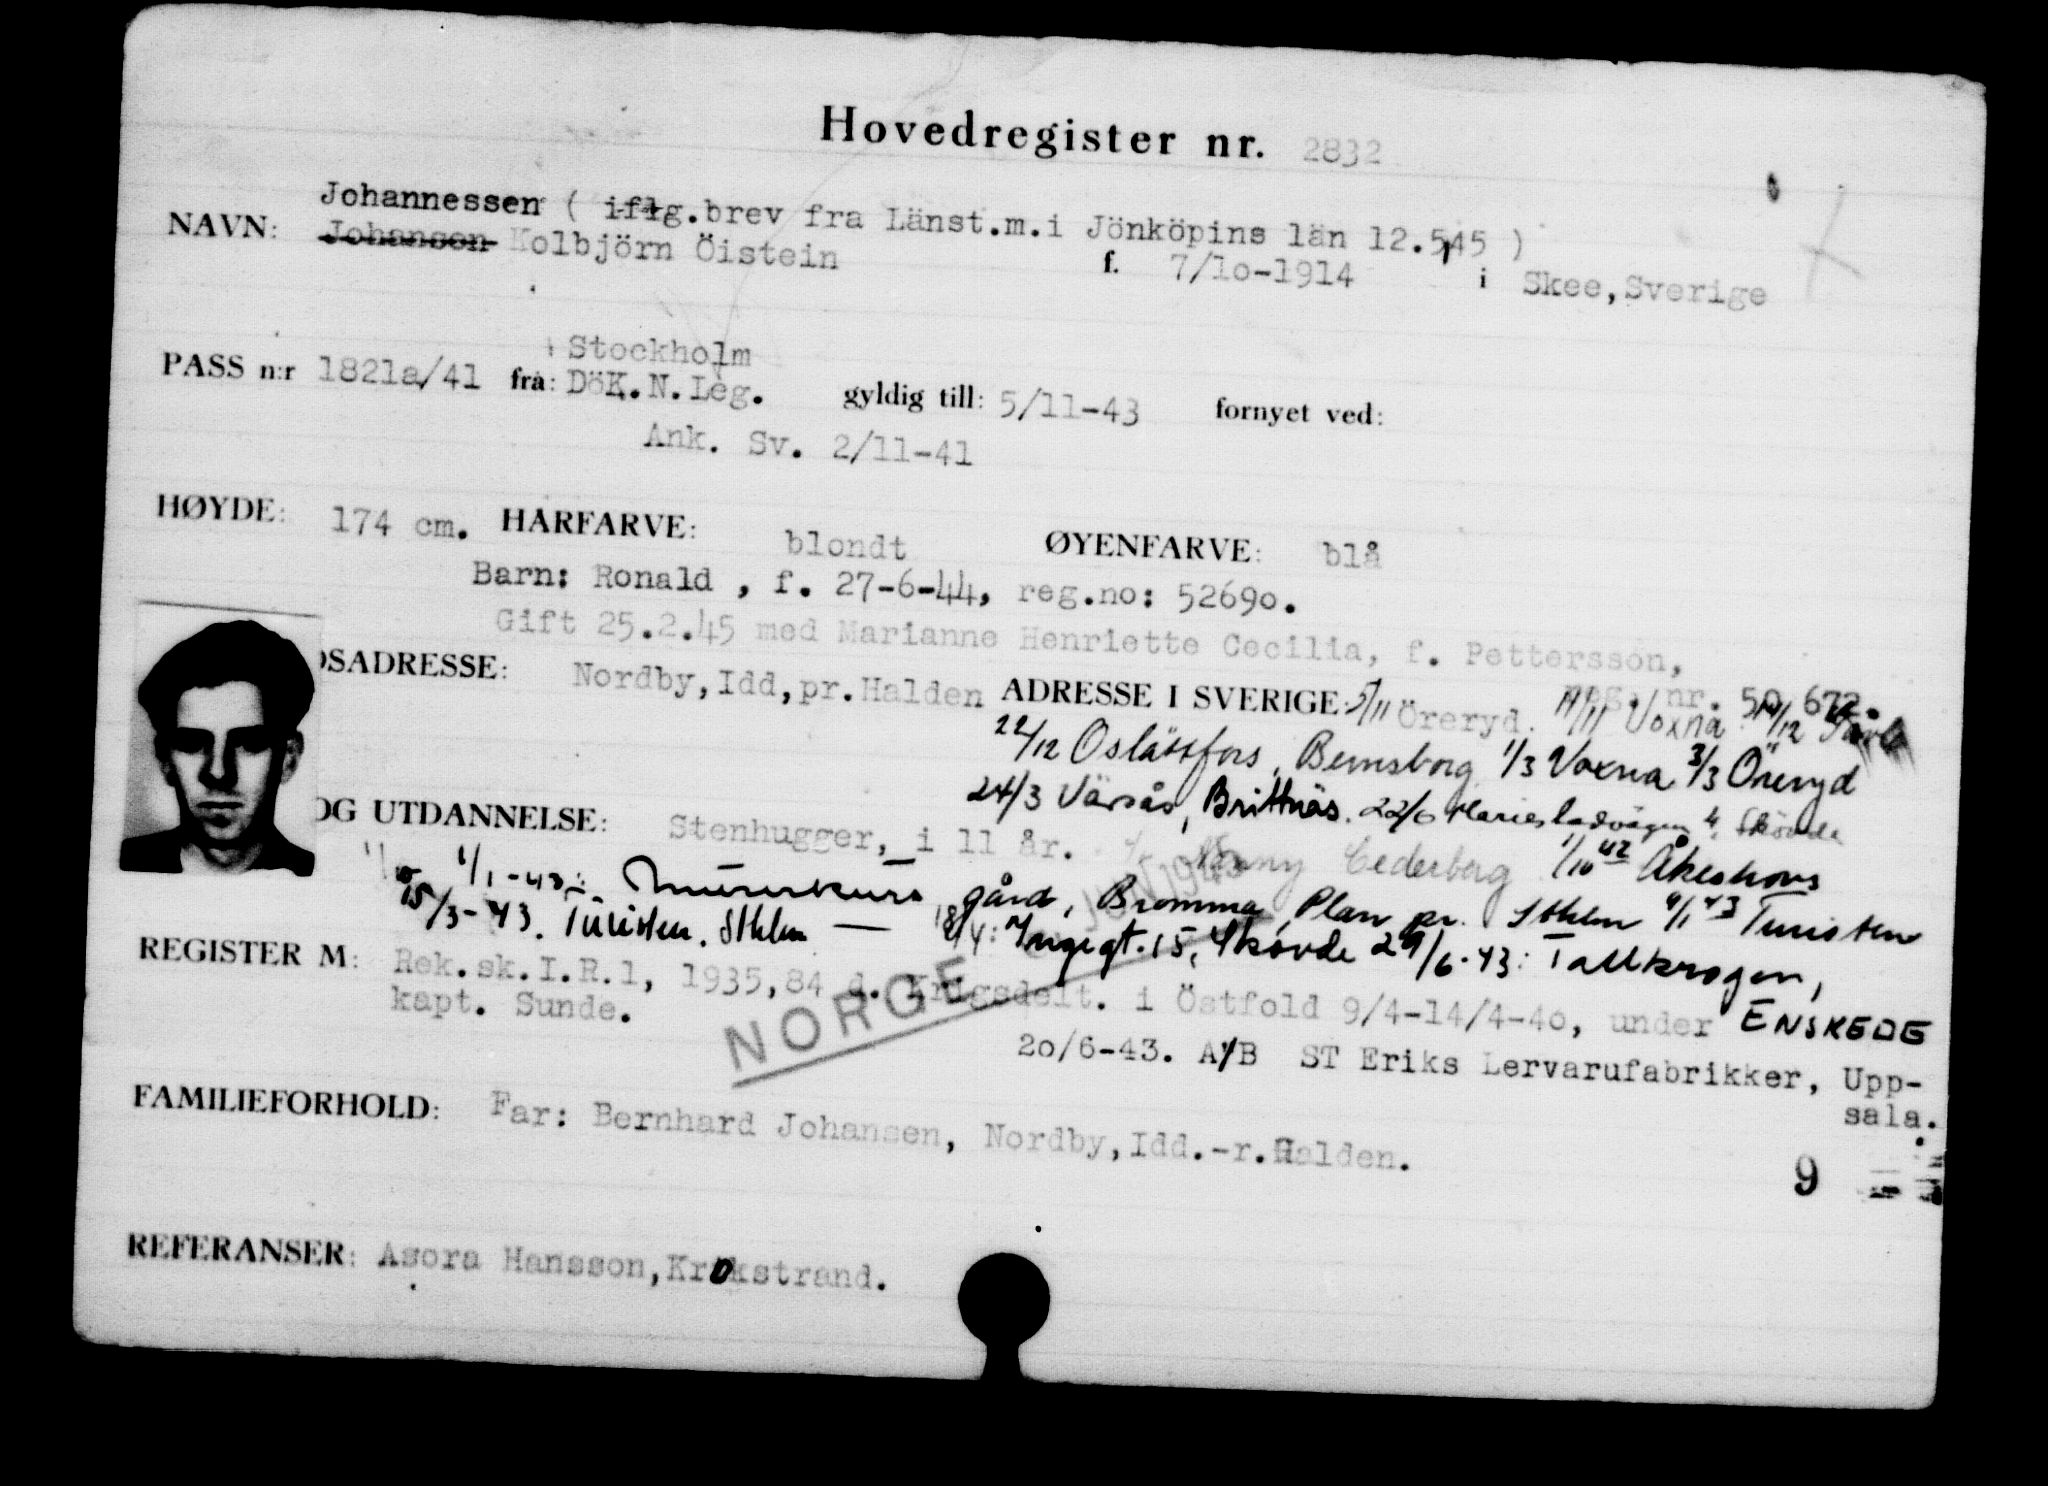 Hovedregister nr. 2832
Johannessen ( iflg.brev fra Länst.m.i Jönköpins län 12.5,45 )
NAVN: Johansen Kolbjörn Öistein f. 7/1o-1914 i Skee,Sverige
Stockholm
PASS n:r 1821a/41 fra: DöK.N.Leg. gyldig till: 5/11-43 fornyet ved:
Ank. Sv. 2/11-41
HØYDE: 174 cm. HARFARVE: blondt ØYENFARVE: blå
Barn: Ronald , f. 27-6-44, reg.no: 5269o.
Gift 25.2.45 med Marianne Henriette Cecilia, f. Pettersson,
reg. nr. 5o 672.
DSADRESSE: Nordby,Idd,pr.Halden ADRESSE I SVERIGE: 5/11 Öreryd. 11/11 Voxna
22/12 Oslättfors, Bernsborg 1/3 Voxna 3/3 Öreryd
24/3 Värsås, Brittnäs. 22/6 Mariesladvägen 4, Skövde
OG UTDANNELSE: Stenhugger,_i 11 år.
Cederberg 1/10 42 Åkeshovs
1/1-43: Murerkurs gård, Bromma, Plan pr. Sthlm 4/1 43 Turisten
15/3-43. Turisten. Sthlm — 18/4: Yngvegt. 15, Skövde 29/6-43: Tallkrogen,
ENSKEDE
REGISTER M: Rek.sk.I.R.1, 1935,84 d. Krigsdelt. i Östfold 9/4-14/4-4o, under
kapt. Sunde.
NORGE JUNI 1945
2o/6-43. A/B ST Eriks Lervarufabrikker, Upp-
sala.
FAMILIEFORHOLD: Far: Bernhard Johansen, Nordby,Idd.-r.Halden.
9
REFERANSER: Asora Hansson,Krokstrand.